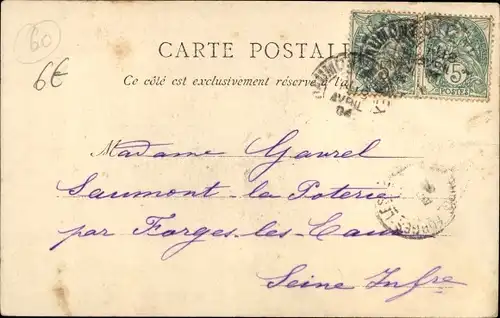 60
6€
CARTE POSTALE
Ce côté est exclusivement réservé à l'a
AVRIL
04
5
POSTES
Madame Gavrel
Saumont-la-Poterie
par Forges-les-Eaux
Seine Infre
FORGES-LES